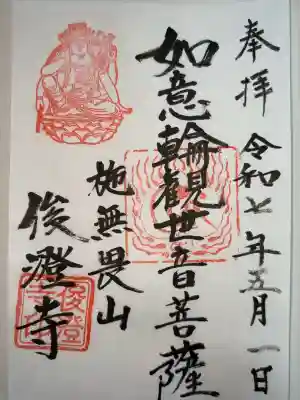 奉拝 令和七年五月一日
如意輪観世音菩薩
施無畏山
俊澄寺
俊澄寺